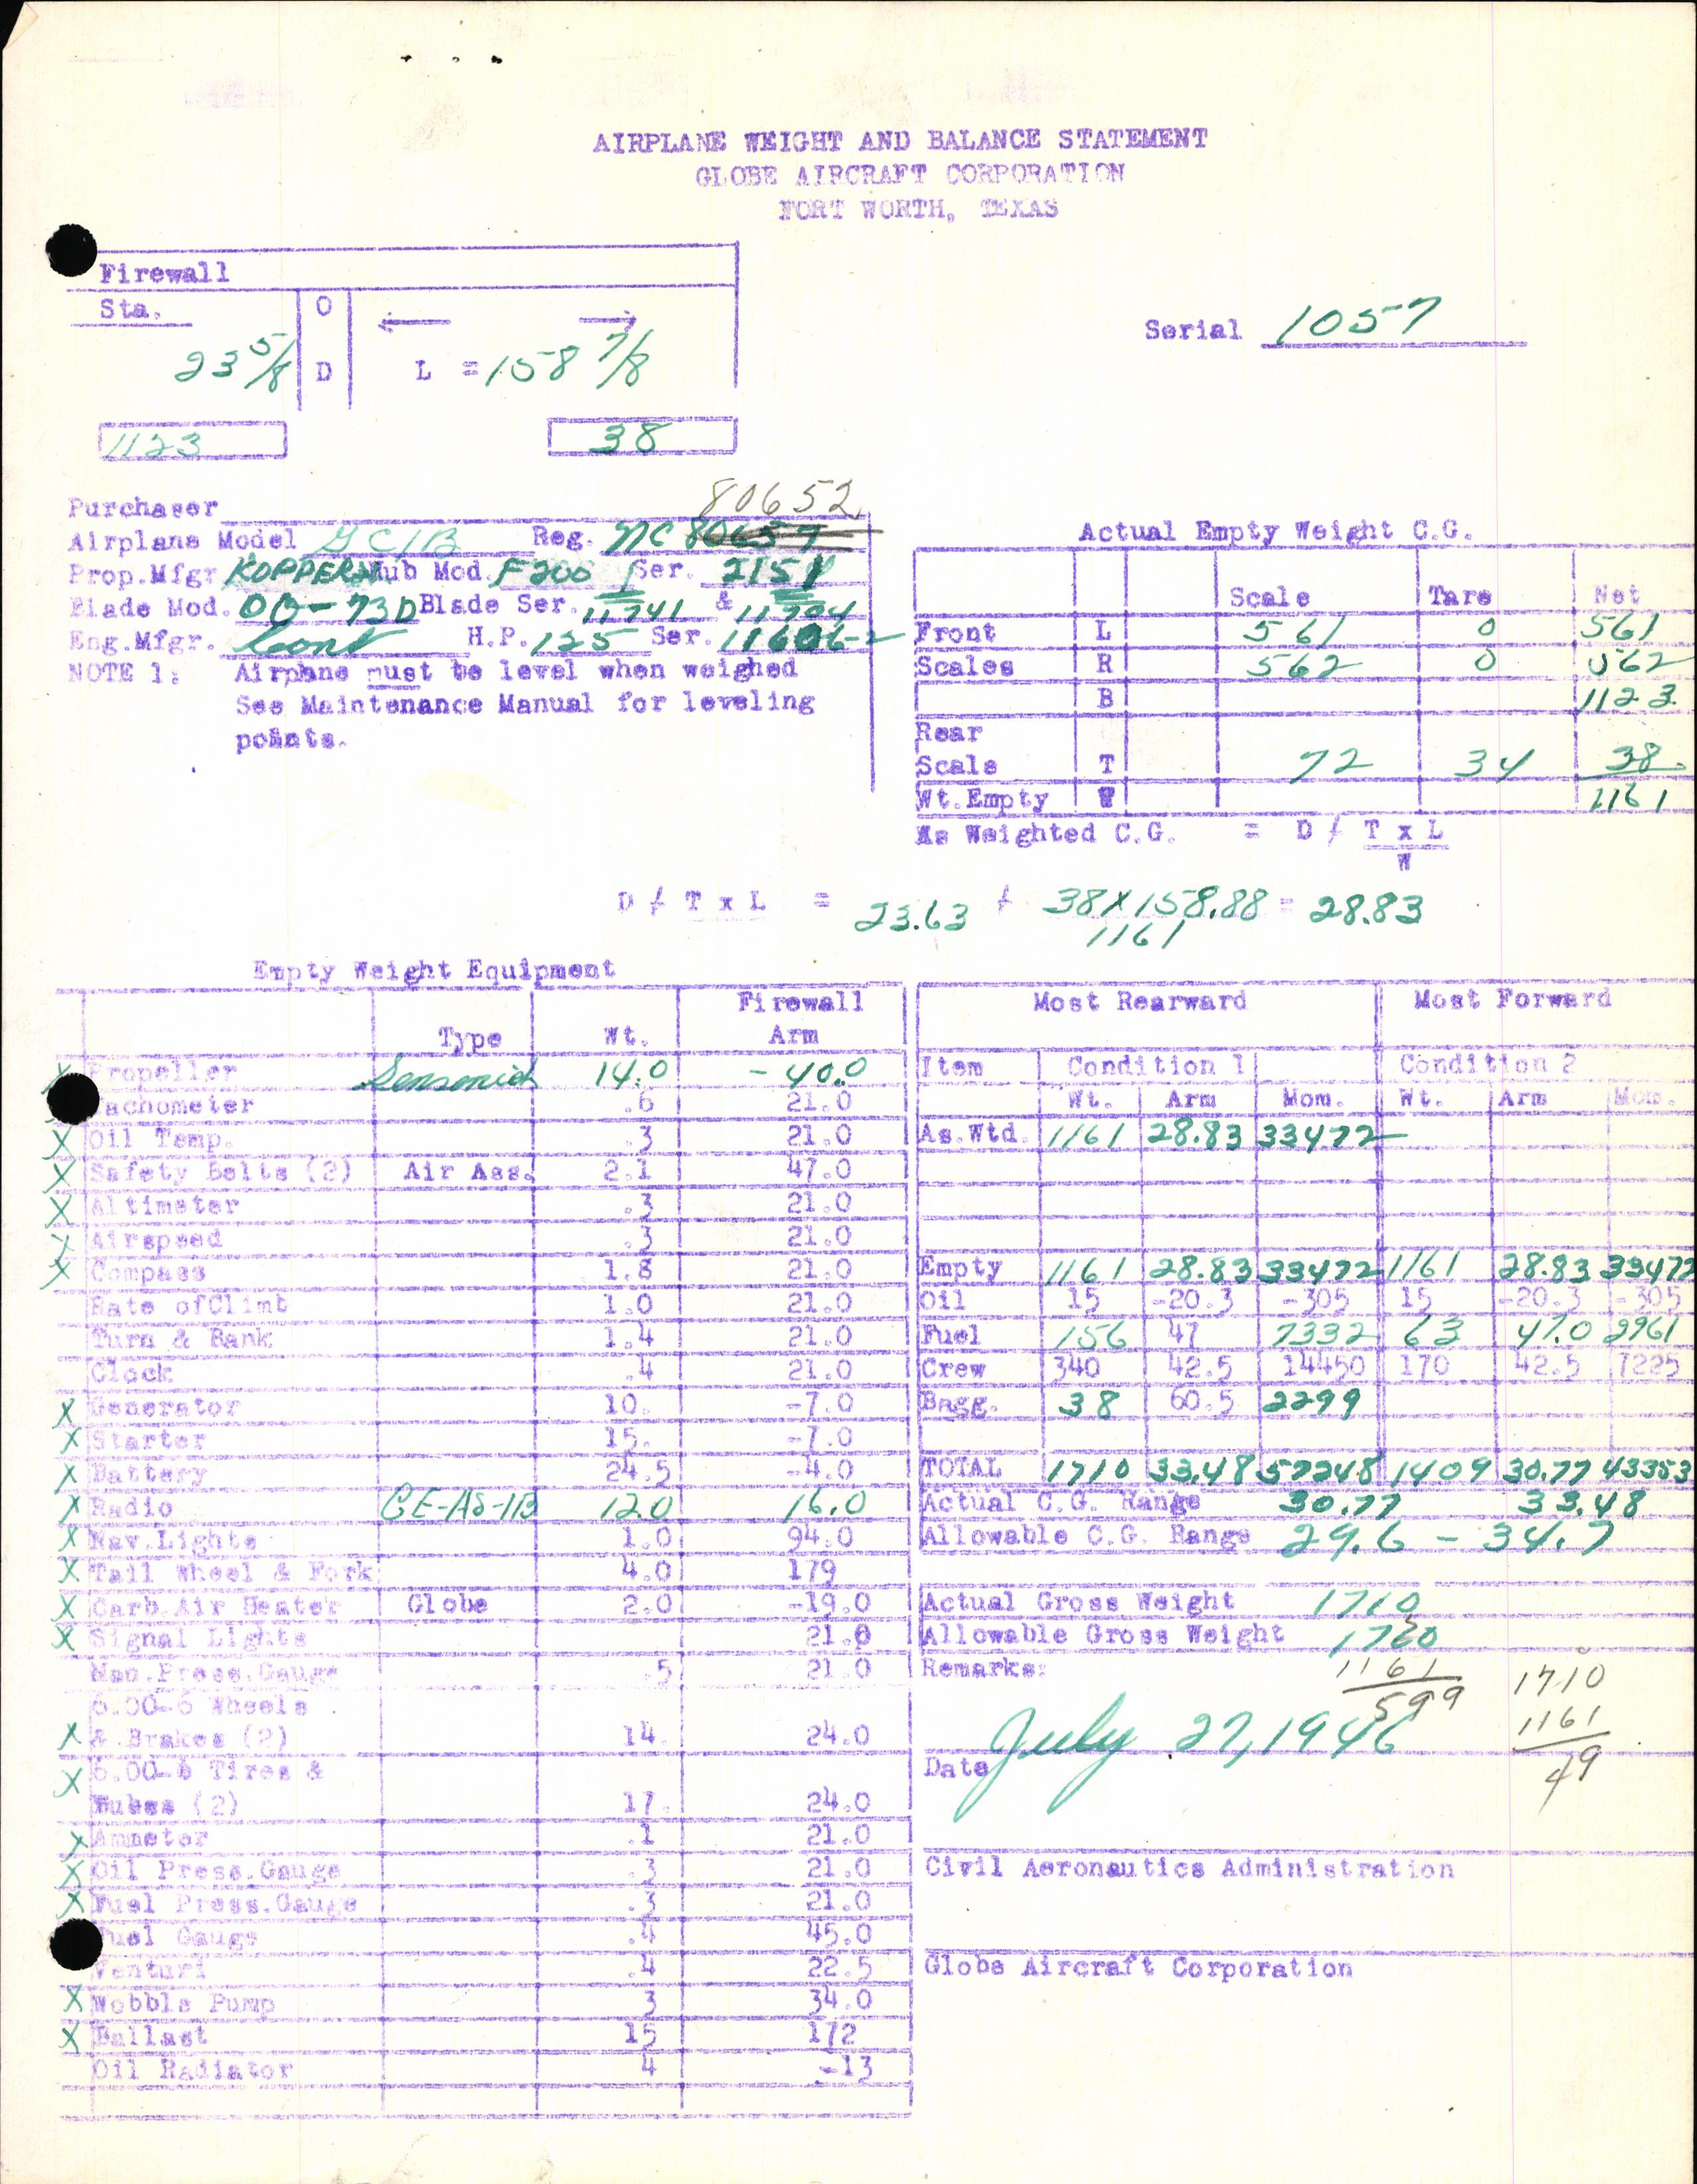 AIRPLANE WEIGHT AND BALANCE STATEMENT
GLOBE AIRCRAFT CORPORATION
FORT WORTH, TEXAS
Firewall
Sta. O
23 5/8 D L = 158 7/8
Serial 1057
1123 38
80652
Purchaser
Airplane Model GC1B Reg. NC 80657
Prop.Mfgr KOPPERS Hub Mod. F200 Ser. 2151
Blade Mod. 00-73D Blade Ser. 11741 & 11704
Eng.Mfgr. Cont H.P. 125 Ser.
NOTE 1: Airplane must be level when weighed
See Maintenance Manual for leveling
points.
Actual Empty Weight C.G.
Scale Tare Net
Front L 561 0 561
Scales R 562 0 562
B 1123
Rear
Scale T 72 34 38
Wt.Empty W 1161
As Weighted C.G. = D / T x L
W
D / T x L = 23.63 / 38 X 158.88 = 28.83
1161
Empty Weight Equipment
Type Wt. Firewall Arm
X Propeller Sensenich 14.0 -40.0
Tachometer .6 21.0
X Oil Temp. .3 21.0
X Safety Belts (2) Air Ass. 2.1 47.0
X Altimeter .3 21.0
X Airspeed .3 21.0
X Compass 1.8 21.0
Rate ofClimb 1.0 21.0
Turn & Bank 1.4 21.0
Clock .4 21.0
X Generator 10. -7.0
X Starter 15. -7.0
X Battery 24.5 -4.0
X Radio GE-AS-1B 12.0 16.0
X Nav.Lights 1.0 94.0
X Tail Wheel & Fork 4.0 179
X Carb.Air Heater Globe 2.0 -19.0
X Signal Lights 21.0
Man.Press.Gauge .5 21.0
6.00-6 Wheels
X & Brakes (2) 14. 24.0
X 6.00-6 Tires &
Tubes (2) 17. 24.0
X Ammeter .1 21.0
X Oil Press.Gauge .3 21.0
X Fuel Press.Gauge .3 21.0
Fuel Gauge .4 45.0
Venturi .4 22.5
X Wobble Pump 3 34.0
X Ballast 15 172
Oil Radiator 4 -13
Most Rearward Most Forward
Item Condition 1 Condition 2
Wt. Arm Mom. Wt. Arm Mom.
As.Wtd. 1161 28.83 33472
Empty 1161 28.83 33472 1161 28.83 33472
Oil 15 -20.3 -305 15 -20.3 -305
Fuel 156 47 7332 63 47.0 2961
Crew 340 42.5 14450 170 42.5 7225
Bagg. 38 60.5 2299
TOTAL 1710 33.48 57248 1409 30.77 43353
Actual C.G. Range 30.77 33.48
Allowable C.G. Range 29.6 - 34.7
Actual Gross Weight 1710
Allowable Gross Weight 1760
Remarks: 1161 1710
599 1161
49
July 27, 1946
Date
Civil Aeronautics Administration
Globe Aircraft Corporation